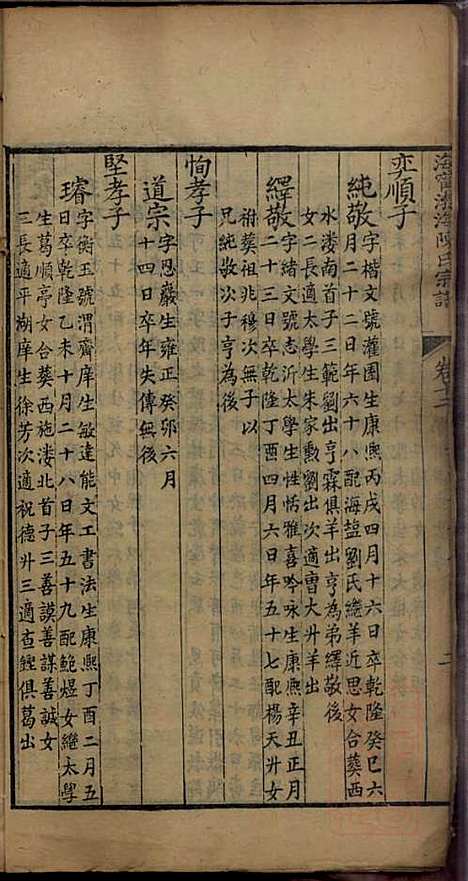 海寧渤海陳氏宗譜
卷十二
二
奕順子
純敬字楷文號灌園生康熙丙戌四月十六日卒乾隆癸巳六
月二十二日年六十八配海鹽劉氏繼羊近思女合葬西
水溇南首子三範劉出亨霖俱羊出亨為弟繹敬後
女二長適太學生朱家勲劉出次適曹大升羊出
繹敬字緒文號志沂太學生性恬雅喜吟咏生康熙辛丑正月
二十三日卒乾隆丁酉四月六日年五十七配楊天升女
祔葬祖兆穆次無子以
兄純敬次子亨為後
恂孝子
道宗字恩嚴生雍正癸卯六月
十四日卒年失傳無後
堅孝子
璿字衡玉號渭齋庠生敏達能文工書法生康熙丁酉二月五
日卒乾隆乙未十月二十八日年五十九配鮑煜女繼太學
生葛順亭女合葬西施溇北首子三善謨善謀善誠女
三長適平湖庠生徐芳次適祝德升三適查鏗俱葛出